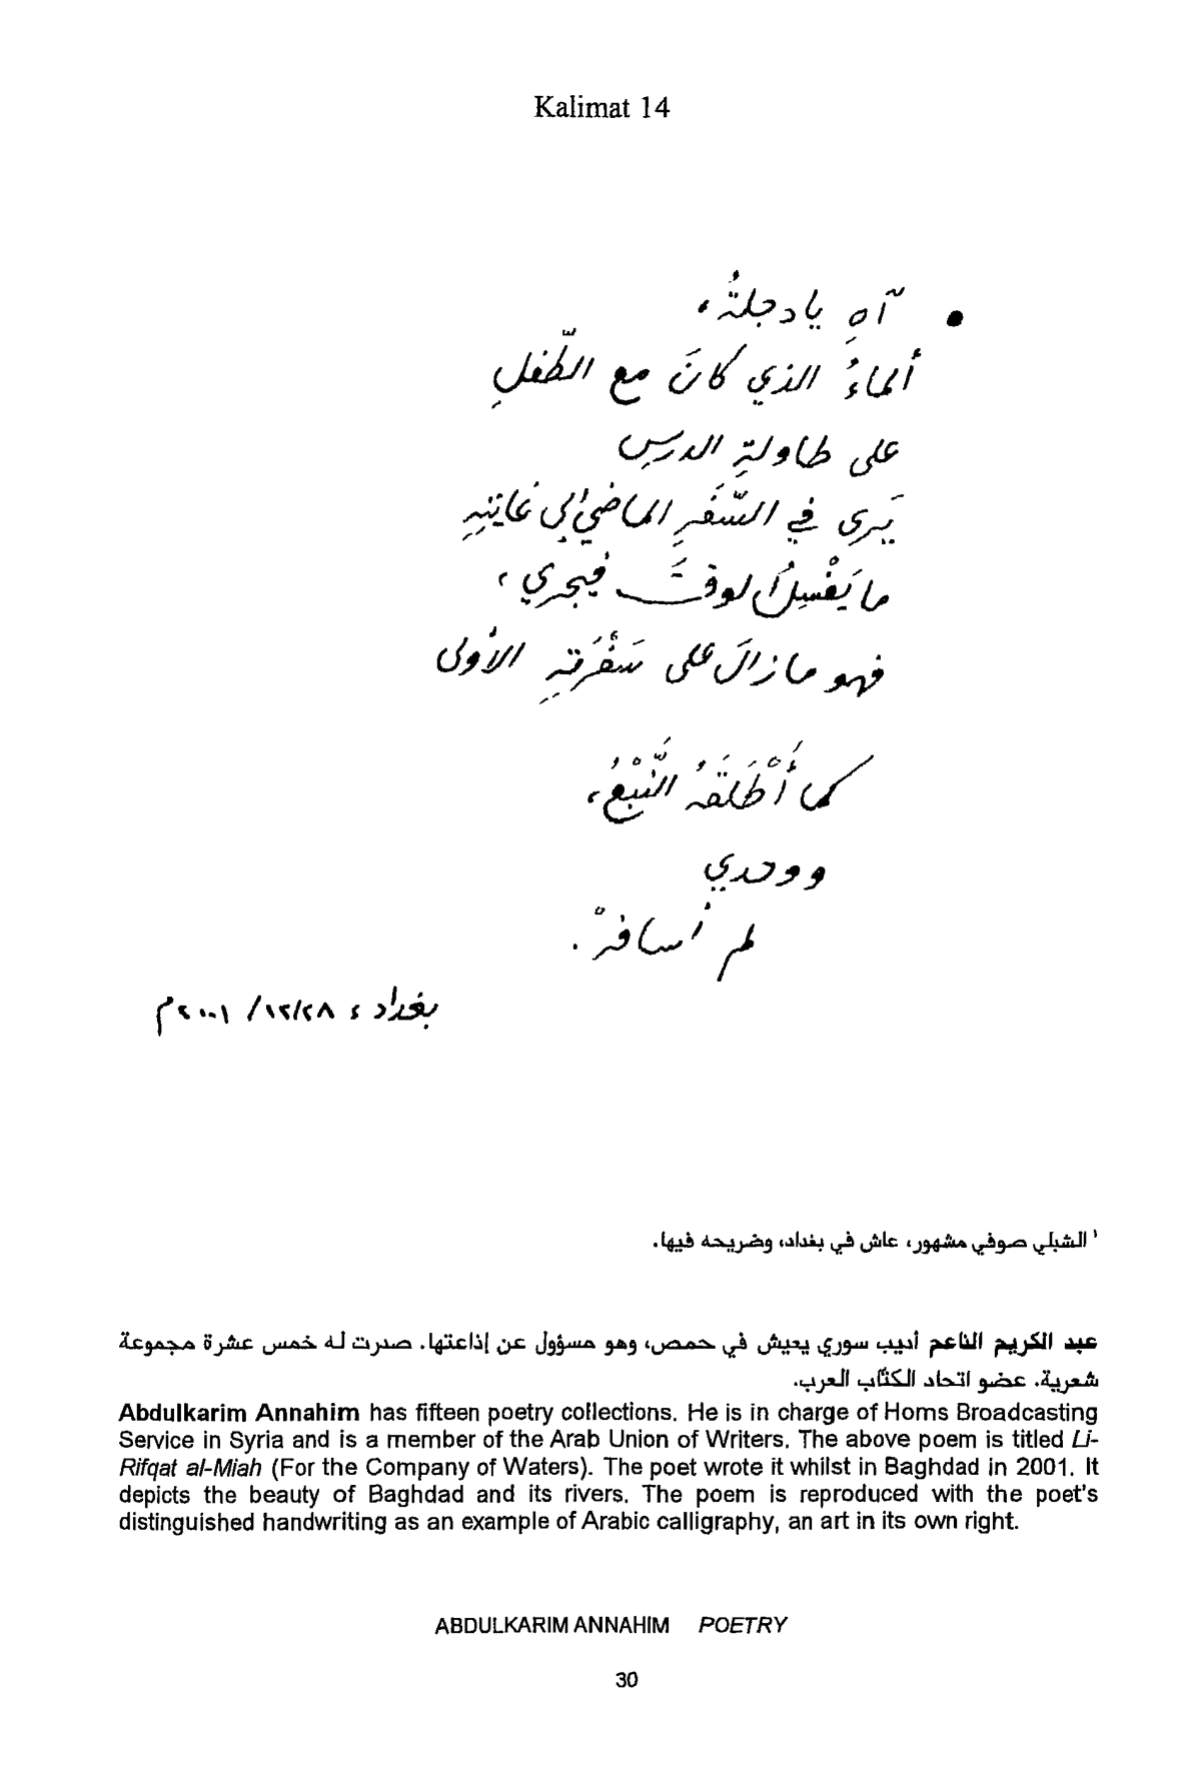 Kalimat 14
• آهِ يا دجلةُ،
ألماءُ الذي كانَ مع الطّفلِ
على طاولةِ الدرسِ
يَرى في السَّفَرِ الماضي إلى غايتِهِ
ما يَغْسِلُ الوقتَ فيجري،
فهو ما زالَ على سَفْرَتِهِ الأولى
كما أَطْلَقَهُ النَّبْعُ،
ووحدي
لم أسافرْ.
بغداد، ٢٨/١٢/ ٢٠٠١م
١ الشبلي صوفي مشهور، عاش في بغداد، وضريحه فيها.
عبد الكريم الناعم أديب سوري يعيش في حمص، وهو مسؤول عن إذاعتها. صدرت له خمس عشرة مجموعة
شعرية. عضو اتحاد الكتّاب العرب.
Abdulkarim Annahim has fifteen poetry collections. He is in charge of Homs Broadcasting
Service in Syria and is a member of the Arab Union of Writers. The above poem is titled Li-
Rifqat al-Miah (For the Company of Waters). The poet wrote it whilst in Baghdad in 2001. It
depicts the beauty of Baghdad and its rivers. The poem is reproduced with the poet's
distinguished handwriting as an example of Arabic calligraphy, an art in its own right.
ABDULKARIM ANNAHIM POETRY
30